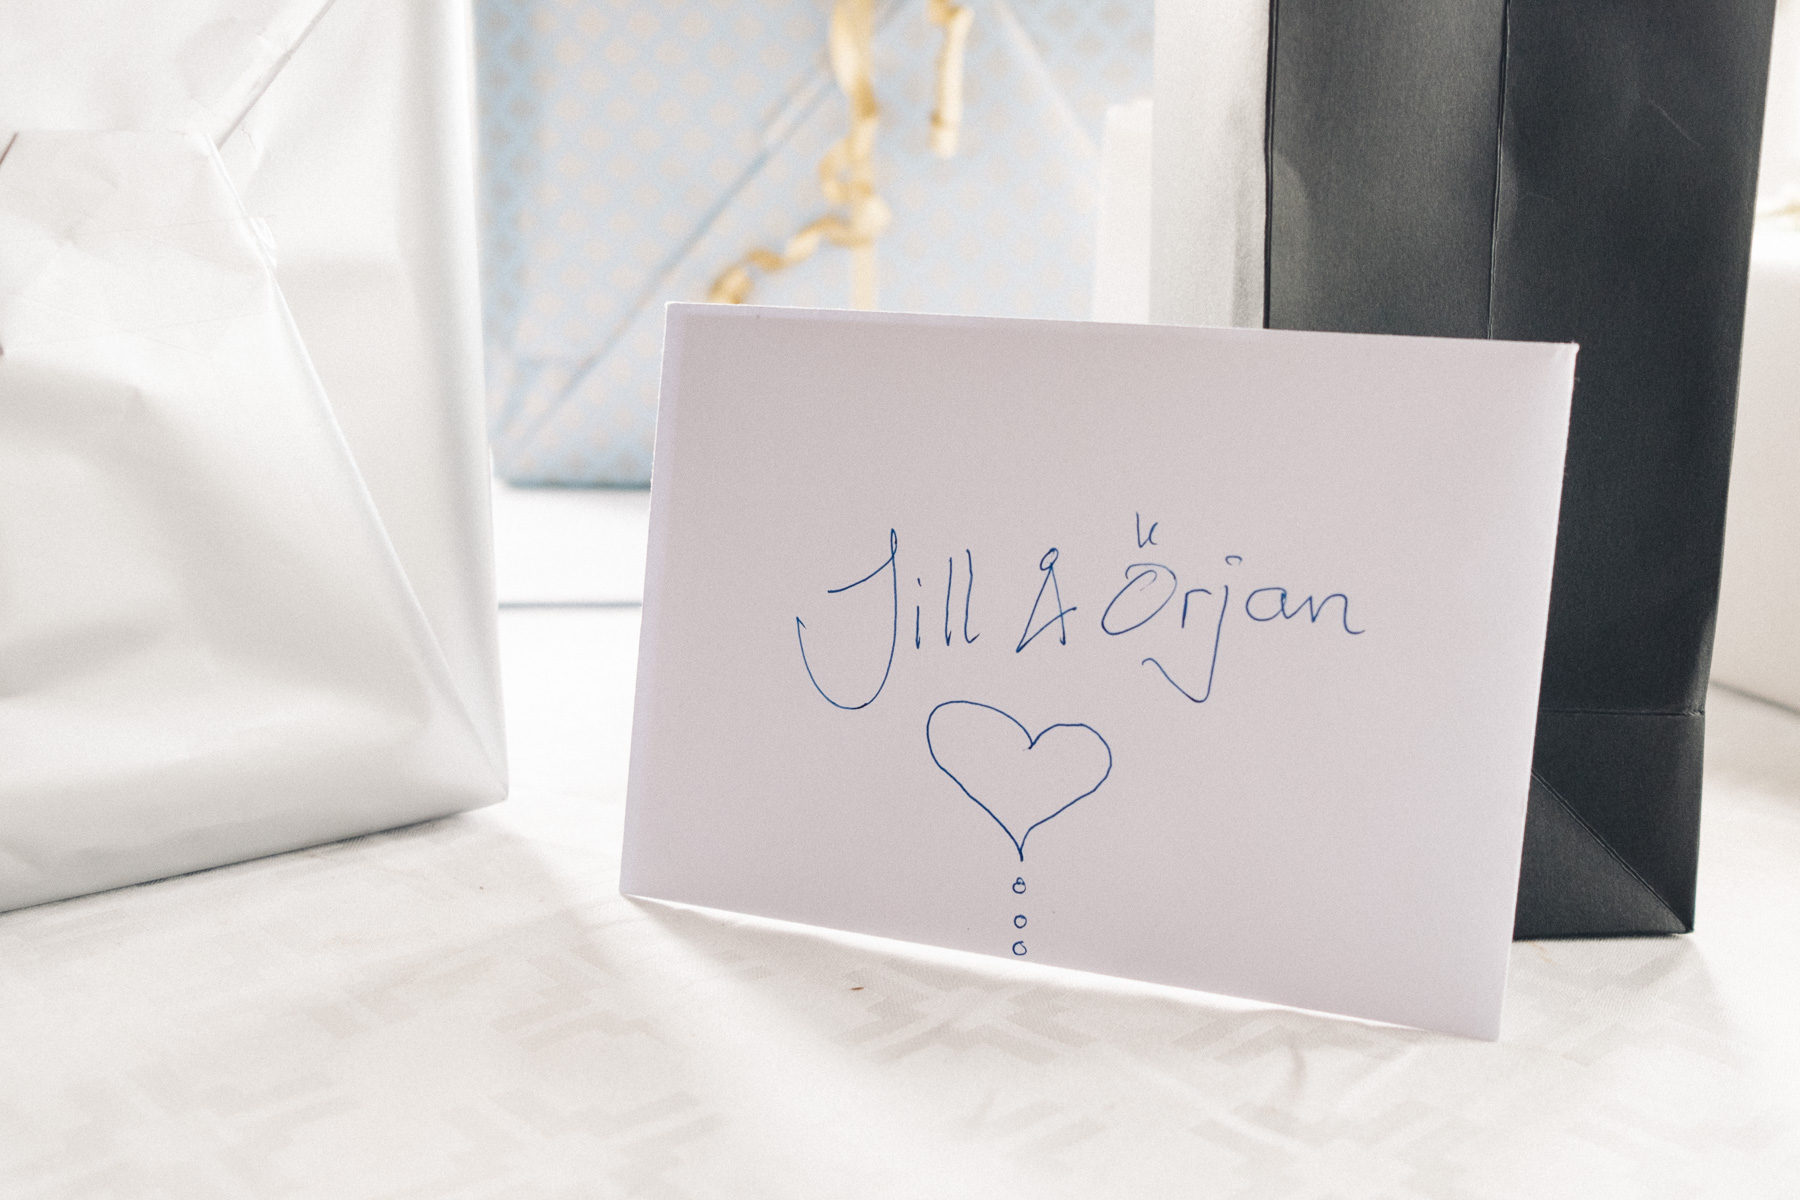 Jill Å Örjan